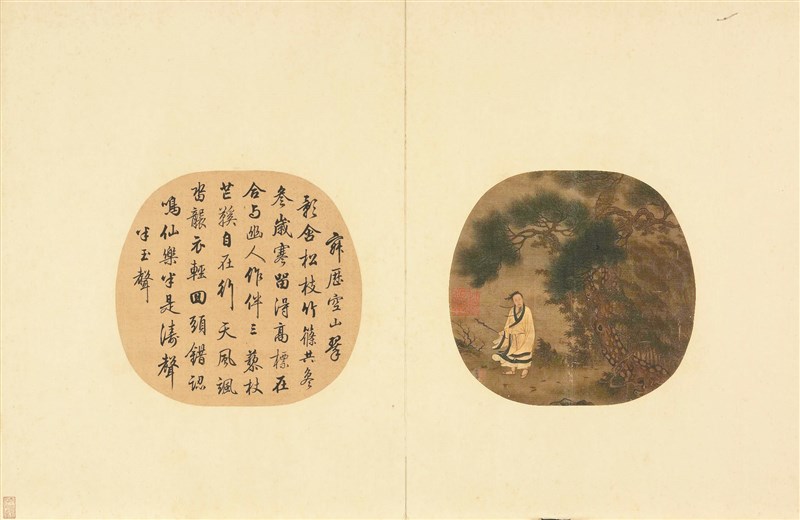 歷空山翠
影含松枝竹篠共叅
叅歲寒留得高標在
合与幽人作伴三藜杖
芒鞵自在行天風颯
沓衣輕回頭錯認
鳴仙樂半是濤聲
半玉聲